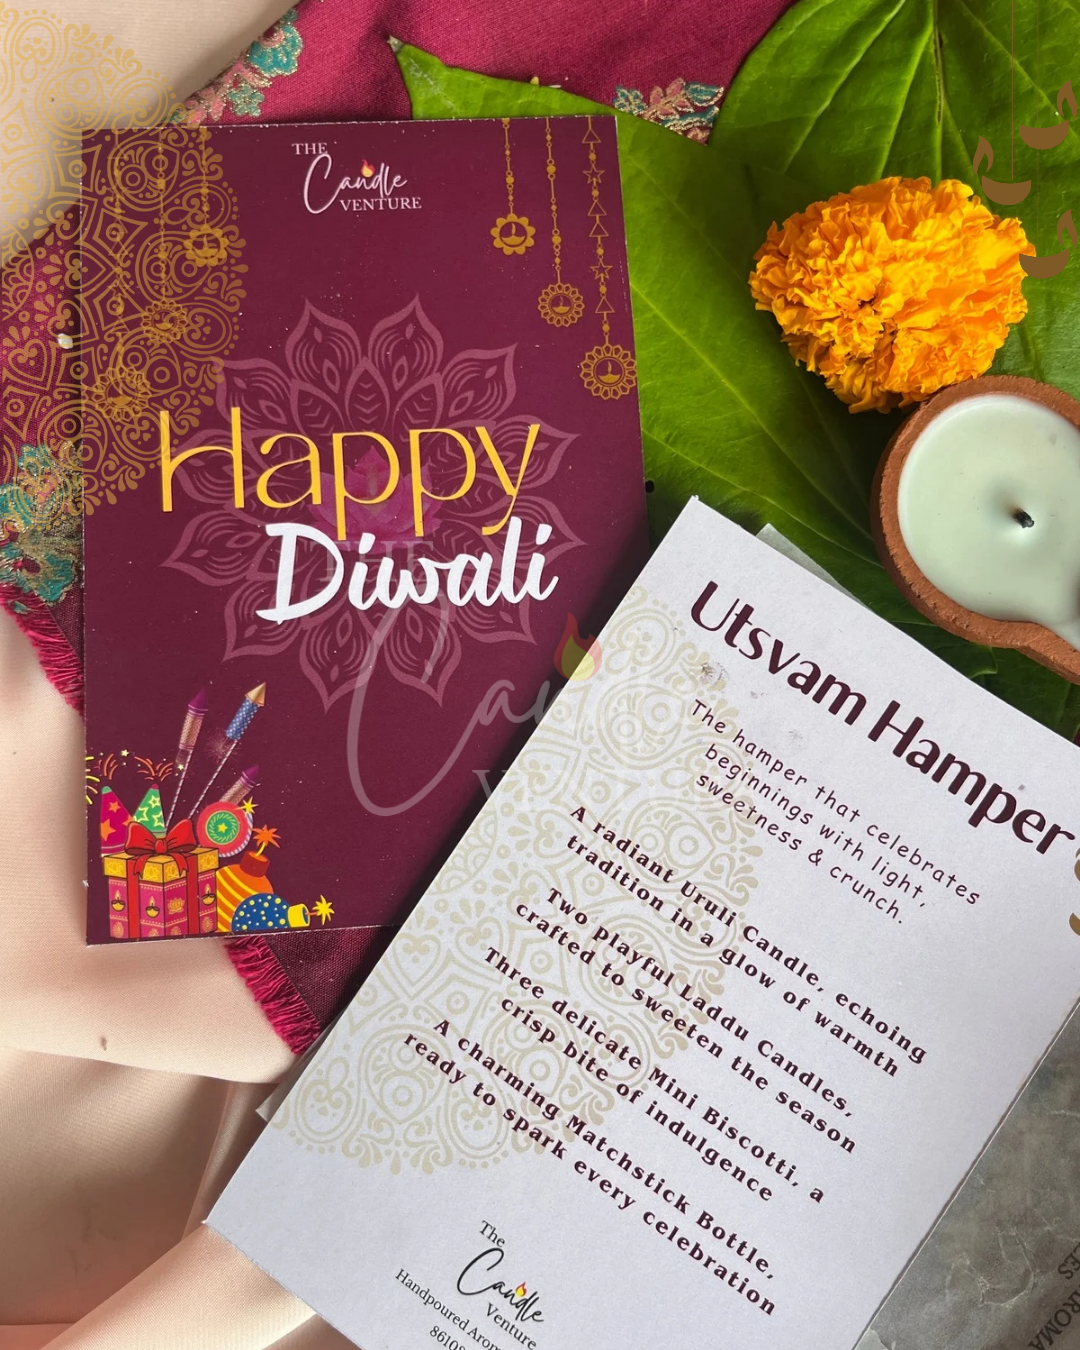 THE
Candle
VENTURE
Happy
Diwali
Utsvam Hamper
The hamper that celebrates
beginnings with light,
sweetness & crunch.
A radiant Uruli Candle, echoing
tradition in a glow of warmth
Two playful Laddu Candles,
crafted to sweeten the season
Three delicate Mini Biscotti, a
crisp bite of indulgence
A charming Matchstick Bottle,
ready to spark every celebration
The
Candle
Venture
Handpoured